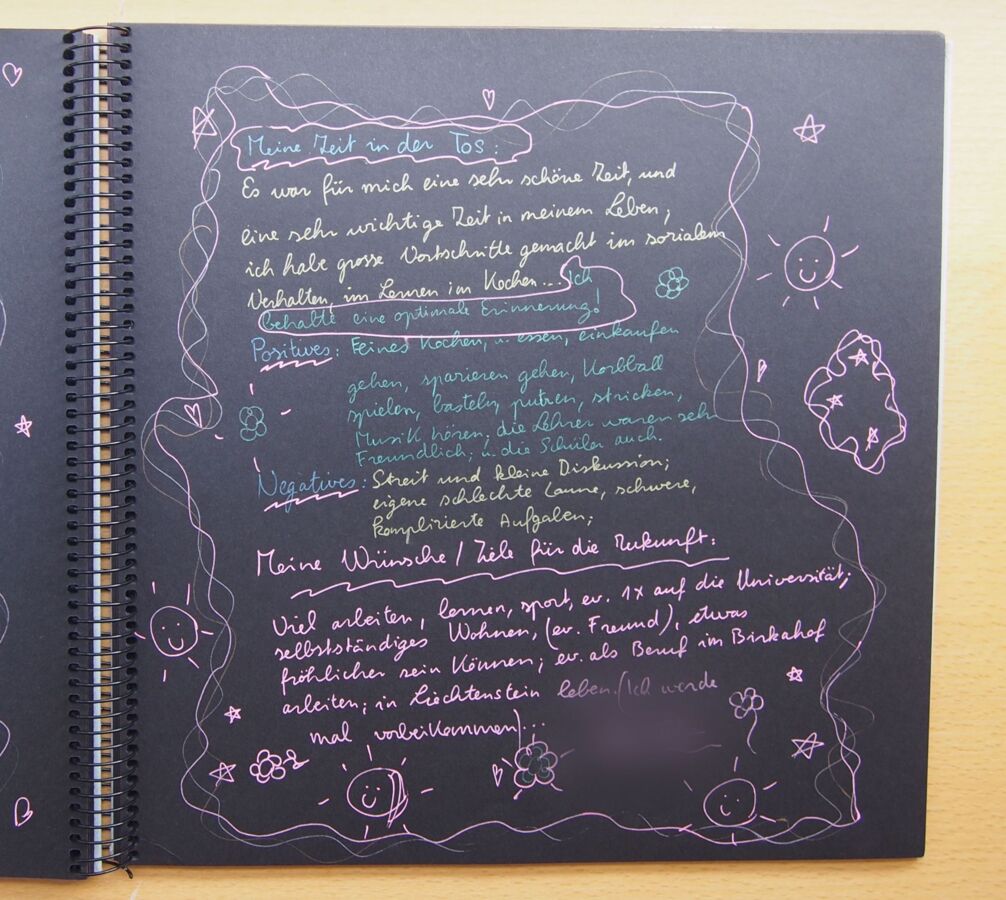 Meine Zeit in der Tos:
Es war für mich eine sehr schöne Zeit, und
eine sehr wichtige Zeit in meinem Leben,
ich habe grosse Vortschritte gemacht im sozialem
Verhalten, im Lernen im Kochen... Ich
behalte eine optimale Erinnerung!
Positives: Feines Kochen, u. essen, einkaufen
gehen, spazieren gehen, Korbball
spielen, basteln, putzen, stricken,
Musik hören, die Lehrer waren sehr
Freundlich; u. die Schüler auch.
Negatives: Streit und kleine Diskussion;
eigene schlechte Laune, schwere,
komplizierte Aufgaben;
Meine Wünsche / Ziele für die Zukunft:
Viel arbeiten, lernen, sport, ev. 1x auf die Universität;
selbstständiges Wohnen, (ev. Freund), etwas
fröhlicher sein Können; ev. als Beruf im Birkahof
arbeiten; in Liechtenstein leben. (Ich werde
mal vorbeikommen)...